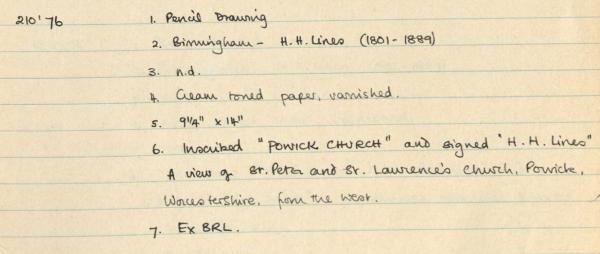 210'76 1. Pencil Drawing
2. Birmingham - H.H. Lines (1801-1889)
3. n.d.
4. Cream toned paper, varnished.
5. 9¼" x 14"
6. Inscribed "POWICK CHURCH" and signed "H.H. Lines"
A view of St. Peter and St. Lawrence's Church, Powick,
Worcestershire, from the west.
7. Ex BRL.